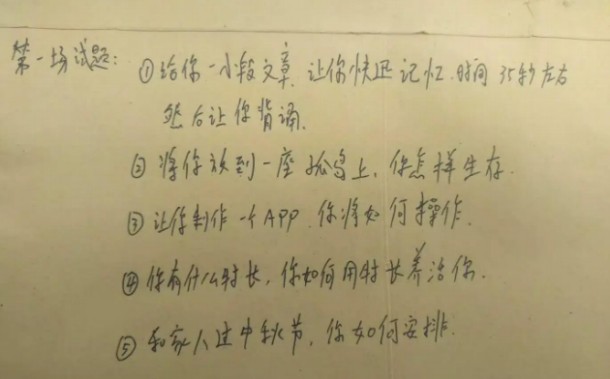 第一场试题：①给你一小段文章，让你快迅记忆，时间35秒左右
然后让你背诵。
②将你放到一座孤岛上，你怎样生存．
③让你制作一个APP．你将如何操作．
④你有什么特长，你如何用特长养活你．
⑤和家人过中秋节，你如何安排．